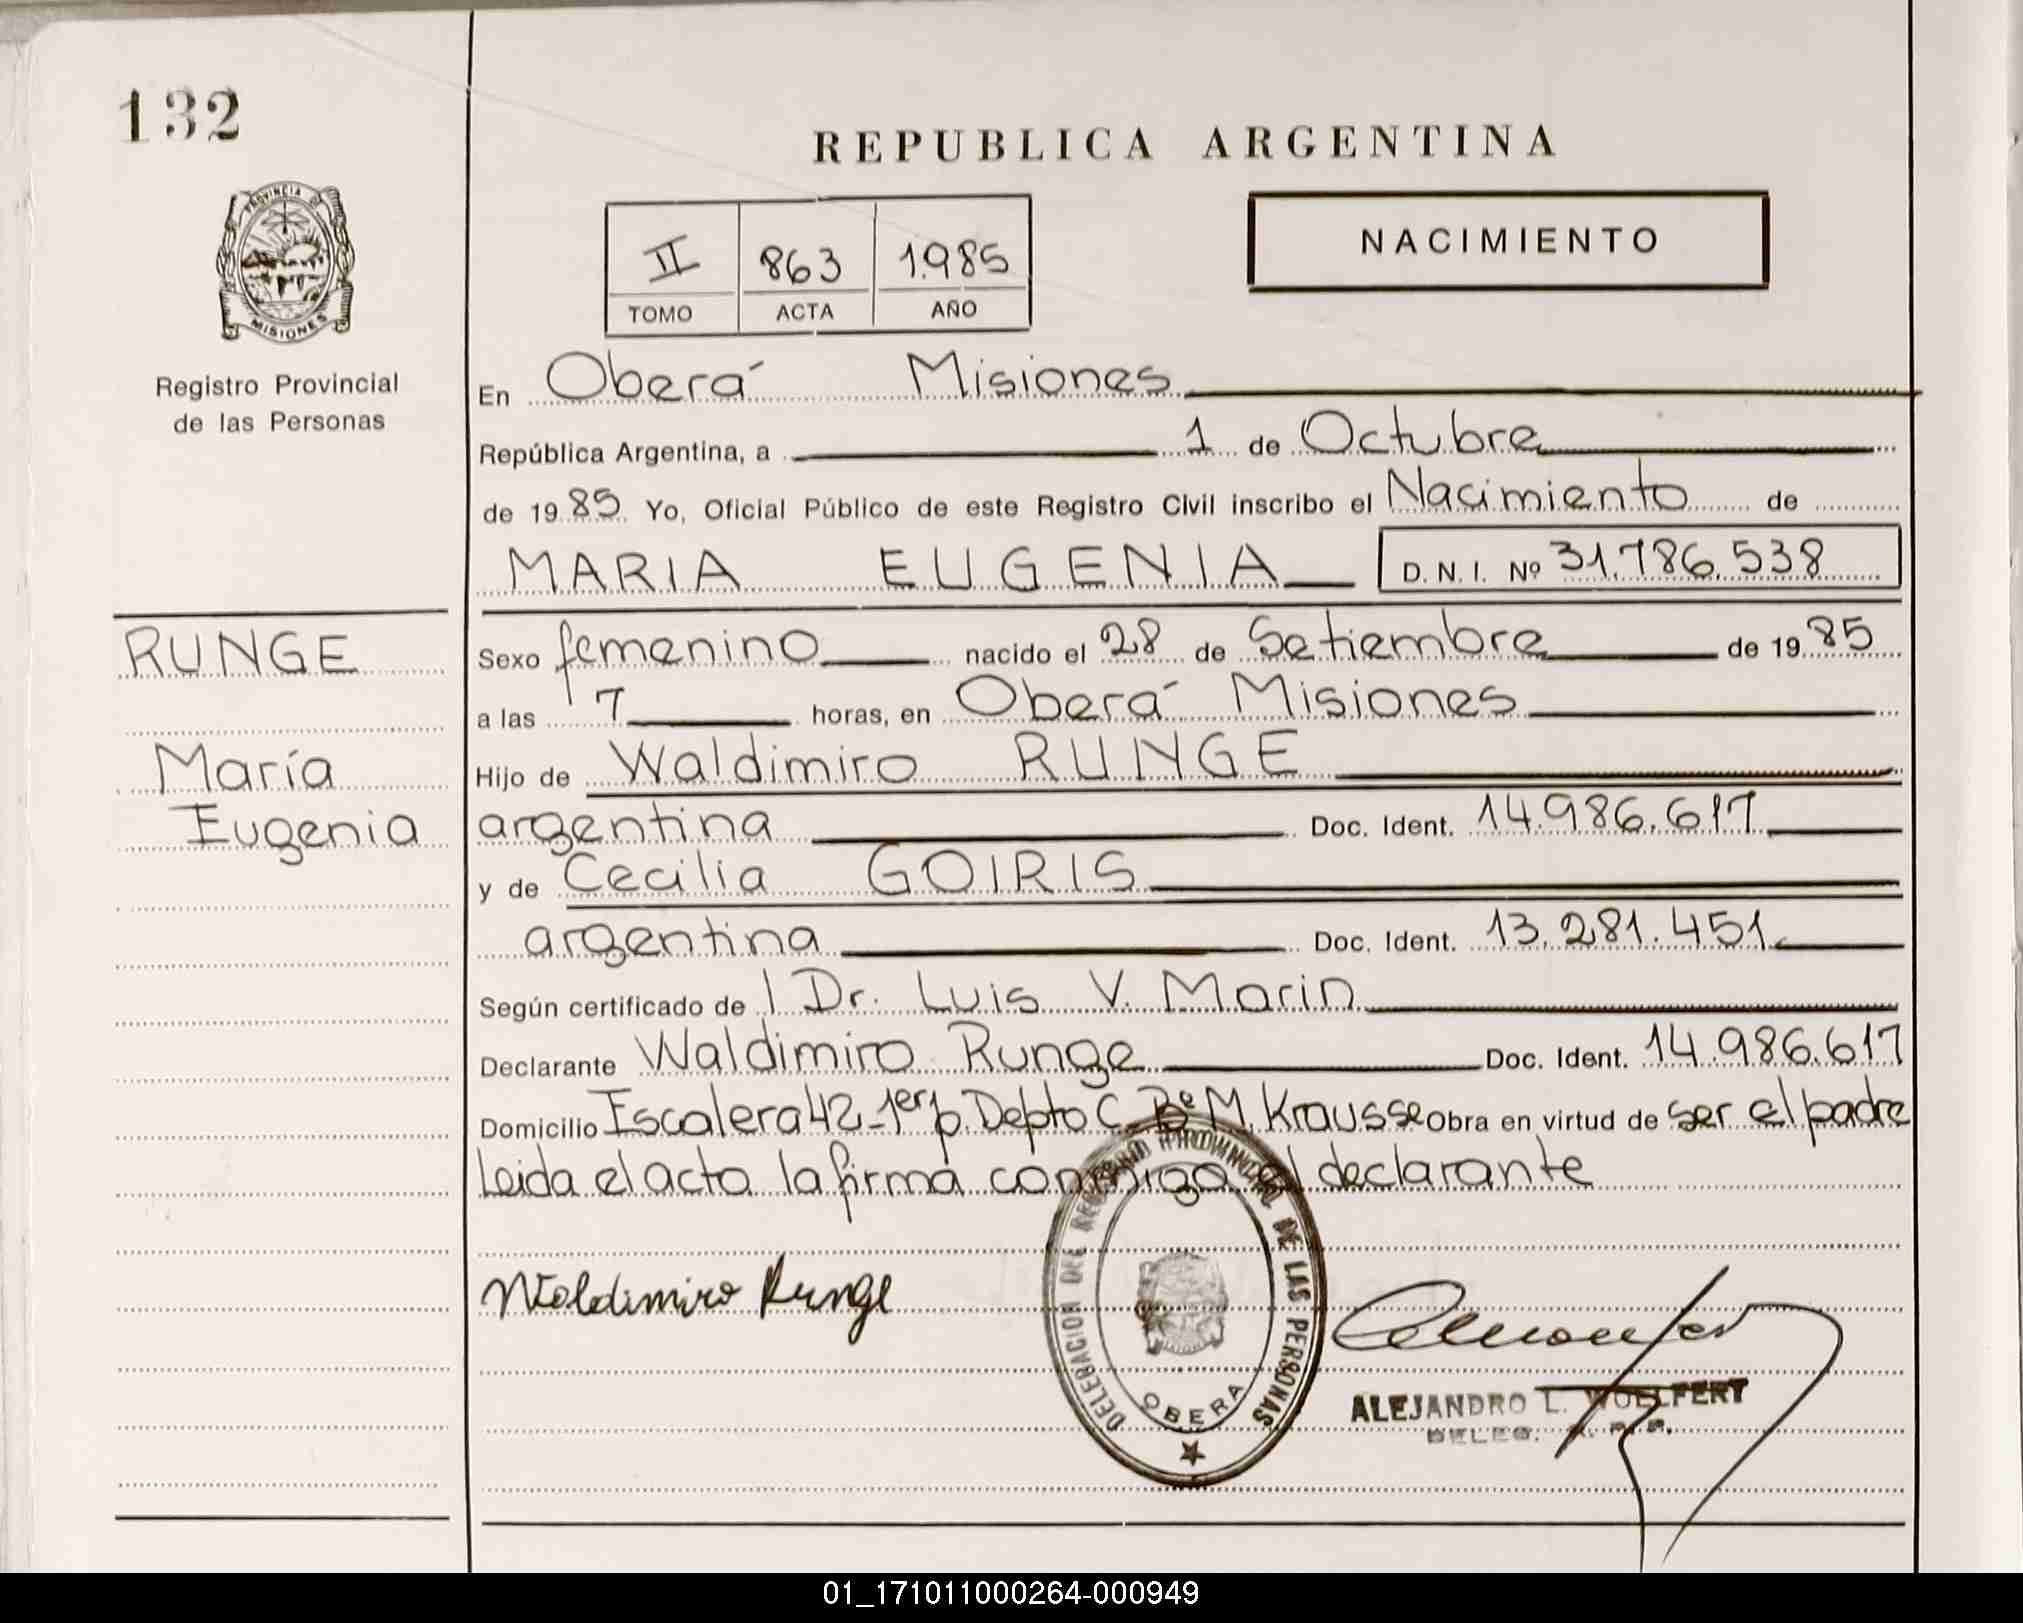 132
REPUBLICA ARGENTINA
PROVINCIA DE
MISIONES
Registro Provincial
de las Personas
II 863 1.985
TOMO ACTA AÑO
NACIMIENTO
En Oberá Misiones
República Argentina, a 1 de Octubre
de 19 85 Yo, Oficial Público de este Registro Civil inscribo el Nacimiento de
MARIA EUGENIA D.N.I. Nº 31.786.538
RUNGE
María
Eugenia
Sexo femenino nacido el 28 de Setiembre de 19 85
a las 7 horas, en Oberá Misiones
Hijo de Waldimiro RUNGE
argentina Doc. Ident. 14.986.617
y de Cecilia GOIRIS
argentina Doc. Ident. 13.281.451
Según certificado de l Dr. Luis V. Marin
Declarante Waldimiro Runge Doc. Ident. 14.986.617
Domicilio Escalera 42-1er p. Depto C. Bº M. Krausse Obra en virtud de ser el padre
Leida el acto la firma conmigo el declarante
Woldimiro Runge
DELEGACION DEL REGISTRO PROVINCIAL DE LAS PERSONAS
OBERA
ALEJANDRO L. WOELFERT
DELEG. R. P. P.
01_171011000264-000949